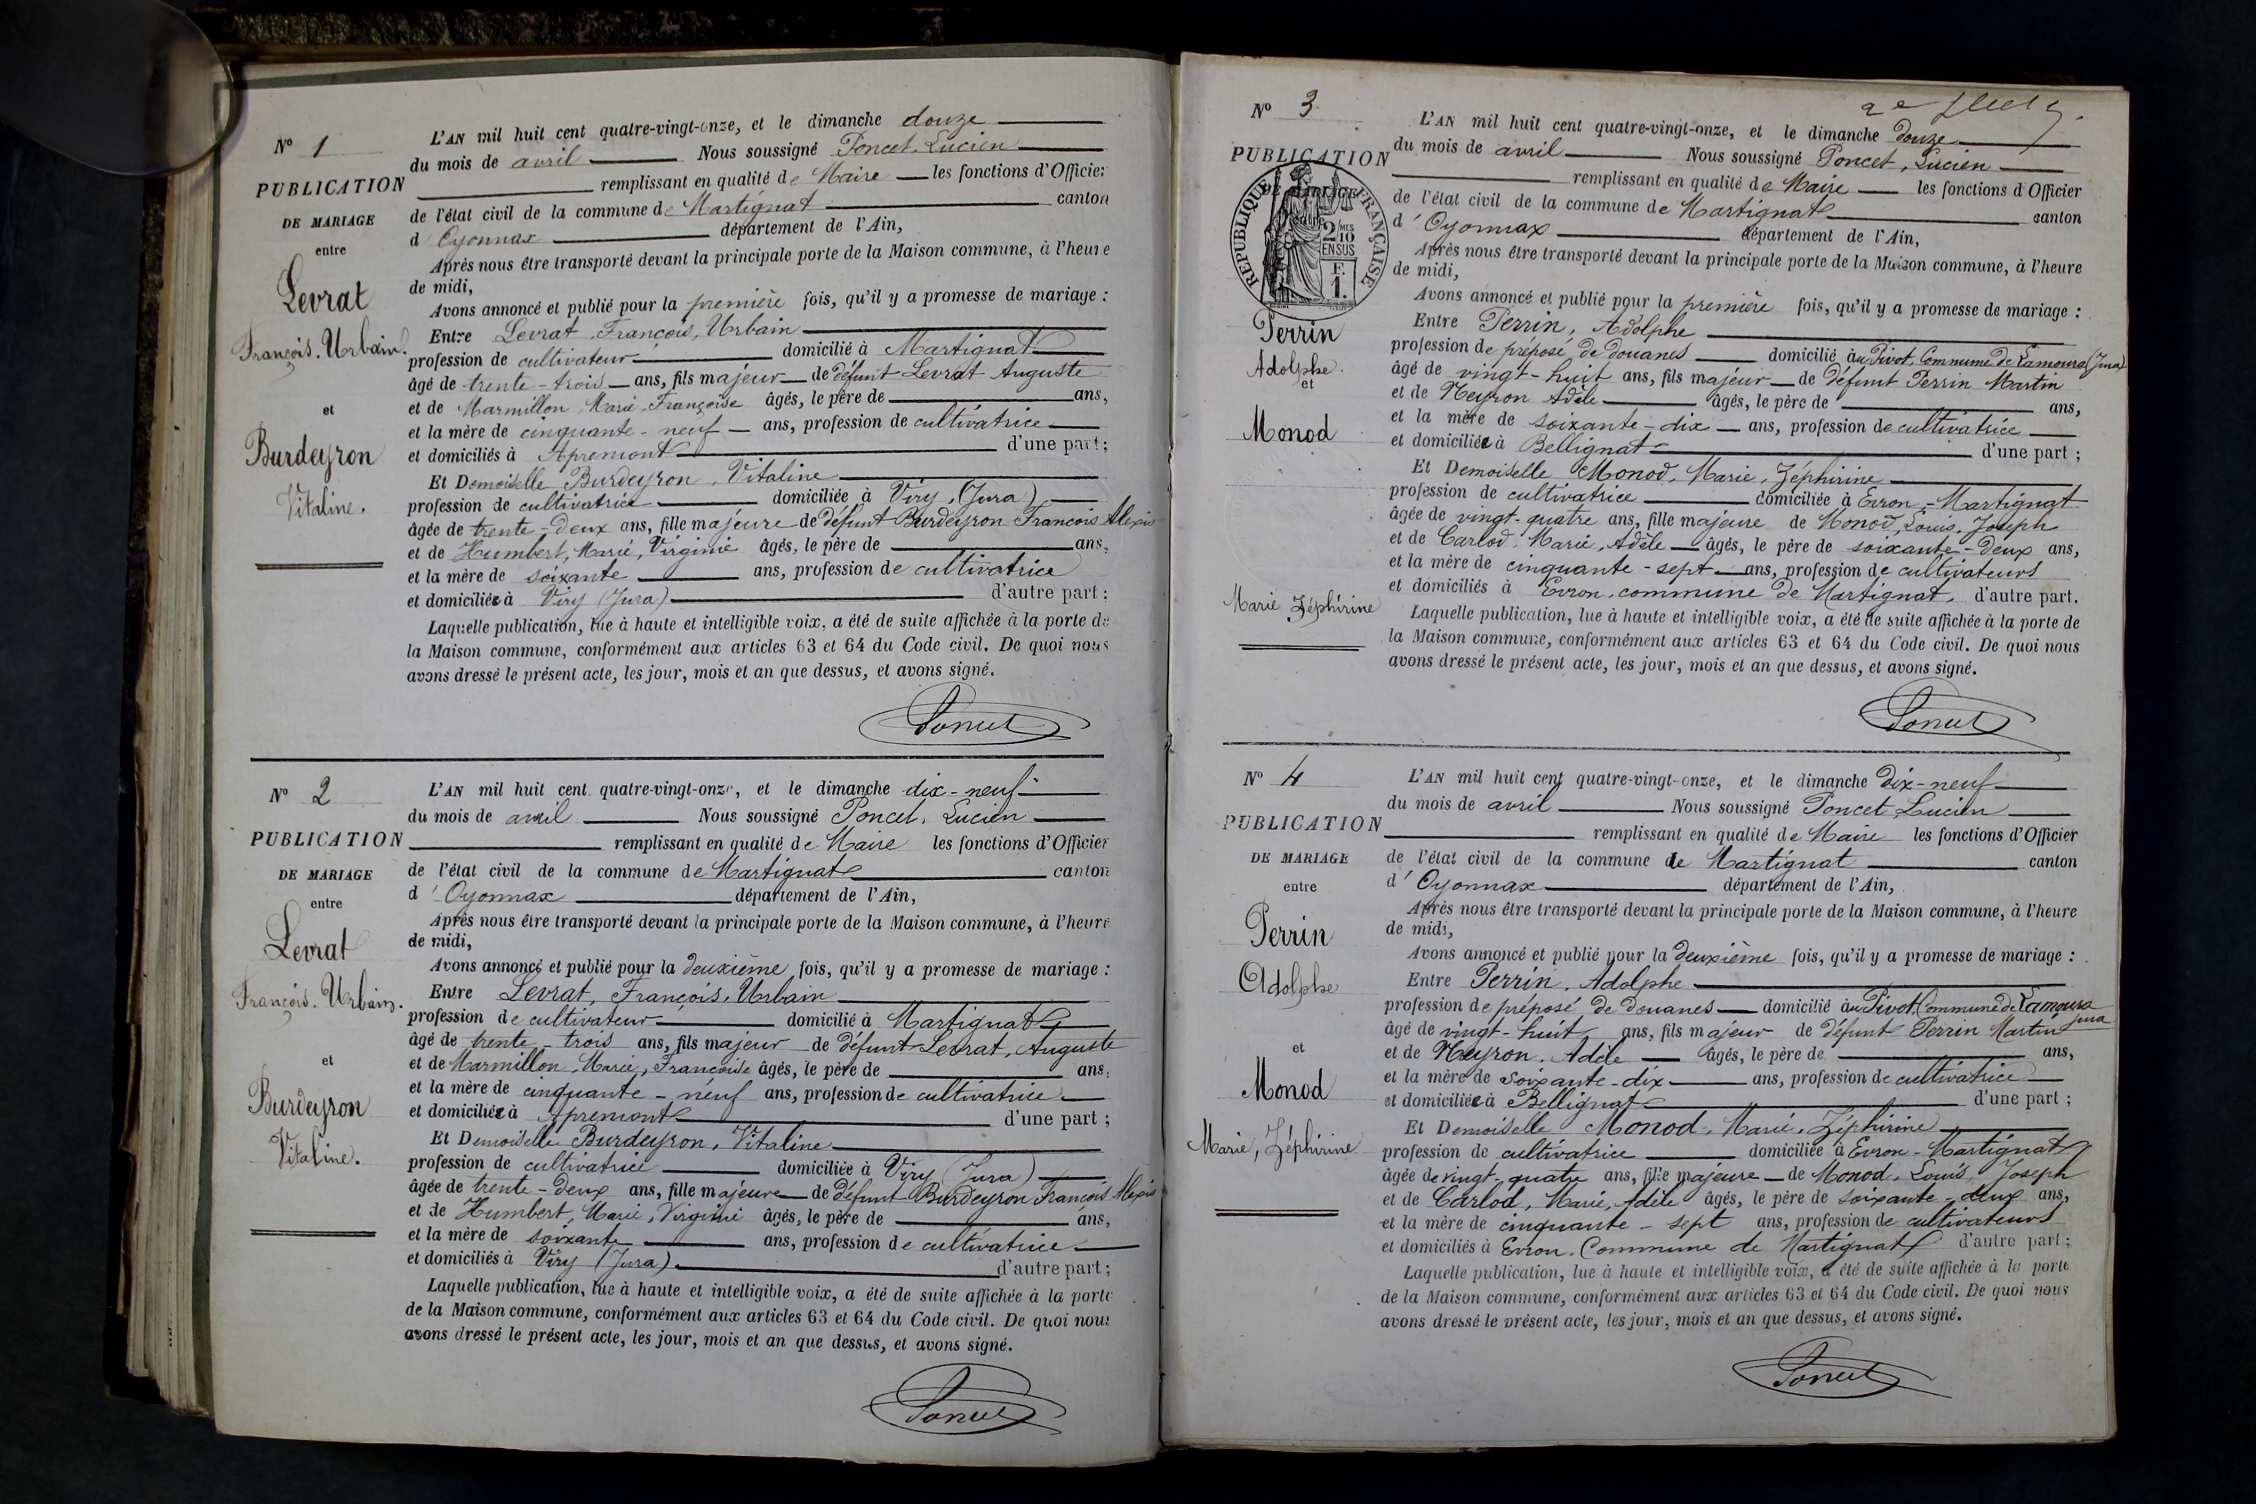 N° 1
PUBLICATION
DE MARIAGE
entre
Levrat
François, Urbain.
et
Burdeyron
Vitaline.
L'AN mil huit cent quatre-vingt-onze, et le dimanche douze
du mois de avril Nous soussigné Poncet, Lucien
remplissant en qualité de Maire les fonctions d'Officier
de l'état civil de la commune de Martignat canton
d'Oyonnax département de l'Ain,
Après nous être transporté devant la principale porte de la Maison commune, à l'heure
de midi,
Avons annoncé et publié pour la première fois, qu'il y a promesse de mariage :
Entre Levrat, François, Urbain
profession de cultivateur domicilié à Martignat
âgé de trente-trois ans, fils majeur de défunt Levrat Auguste
et de Marmillon, Marie, Françoise âgés, le père de ans,
et la mère de cinquante-neuf ans, profession de cultivatrice
et domiciliés à Apremont d'une part ;
Et Demoiselle Burdeyron, Vitaline
profession de cultivatrice domiciliée à Viry, (Jura)
âgée de trente-deux ans, fille majeure de défunt Burdeyron François Alexis
et de Humbert, Marie, Virginie âgés, le père de ans,
et la mère de soixante ans, profession de cultivatrice
et domiciliée à Viry (Jura) d'autre part ;
Laquelle publication, lue à haute et intelligible voix, a été de suite affichée à la porte de
la Maison commune, conformément aux articles 63 et 64 du Code civil. De quoi nous
avons dressé le présent acte, les jour, mois et an que dessus, et avons signé.
Poncet
N° 2
PUBLICATION
DE MARIAGE
entre
Levrat
François, Urbain.
et
Burdeyron
Vitaline.
L'AN mil huit cent quatre-vingt-onze, et le dimanche dix-neuf
du mois de avril Nous soussigné Poncet, Lucien
remplissant en qualité de Maire les fonctions d'Officier
de l'état civil de la commune de Martignat canton
d'Oyonnax département de l'Ain,
Après nous être transporté devant la principale porte de la Maison commune, à l'heure
de midi,
Avons annoncé et publié pour la deuxième fois, qu'il y a promesse de mariage :
Entre Levrat, François, Urbain
profession de cultivateur domicilié à Martignat
âgé de trente-trois ans, fils majeur de défunt Levrat, Auguste
et de Marmillon, Marie, Françoise âgés, le père de ans,
et la mère de cinquante-neuf ans, profession de cultivatrice
et domiciliée à Apremont d'une part ;
Et Demoiselle Burdeyron, Vitaline
profession de cultivatrice domiciliée à Viry (Jura)
âgée de trente-deux ans, fille majeure de défunt Burdeyron François Alexis
et de Humbert, Marie, Virginie âgés, le père de ans,
et la mère de soixante ans, profession de cultivatrice
et domiciliés à Viry (Jura) d'autre part ;
Laquelle publication, lue à haute et intelligible voix, a été de suite affichée à la porte
de la Maison commune, conformément aux articles 63 et 64 du Code civil. De quoi nous
avons dressé le présent acte, les jour, mois et an que dessus, et avons signé.
Poncet
N° 3
PUBLICATION
DE MARIAGE
RÉPUBLIQUE FRANÇAISE
2/10
EN SUS
F.
1.
Perrin
Adolphe.
et
Monod
Marie Zéphirine
L'AN mil huit cent quatre-vingt-onze, et le dimanche douze
du mois de avril Nous soussigné Poncet, Lucien
remplissant en qualité de Maire les fonctions d'Officier
de l'état civil de la commune de Martignat canton
d'Oyonnax département de l'Ain,
Après nous être transporté devant la principale porte de la Maison commune, à l'heure
de midi,
Avons annoncé et publié pour la première fois, qu'il y a promesse de mariage :
Entre Perrin, Adolphe
profession de préposé de douanes domicilié au Pivot, Commune de Lamoura (Jura)
âgé de vingt-huit ans, fils majeur de défunt Perrin Martin
et de Neyron Adèle âgés, le père de ans,
et la mère de soixante-dix ans, profession de cultivatrice
et domiciliée à Bellignat d'une part ;
Et Demoiselle Monod, Marie, Zéphirine
profession de cultivatrice domiciliée à Evron-Martignat
âgée de vingt-quatre ans, fille majeure de Monod, Louis, Joseph
et de Carlod, Marie, Adèle âgés, le père de soixante-deux ans,
et la mère de cinquante-sept ans, profession de cultivateurs
et domiciliés à Evron, commune de Martignat, d'autre part.
Laquelle publication, lue à haute et intelligible voix, a été de suite affichée à la porte de
la Maison commune, conformément aux articles 63 et 64 du Code civil. De quoi nous
avons dressé le présent acte, les jour, mois et an que dessus, et avons signé.
Poncet
N° 4
PUBLICATION
DE MARIAGE
entre
Perrin
Adolphe
et
Monod
Marie, Zéphirine
L'AN mil huit cent quatre-vingt-onze, et le dimanche dix-neuf
du mois de avril Nous soussigné Poncet Lucien
remplissant en qualité de Maire les fonctions d'Officier
de l'état civil de la commune de Martignat canton
d'Oyonnax département de l'Ain,
Après nous être transporté devant la principale porte de la Maison commune, à l'heure
de midi,
Avons annoncé et publié pour la deuxième fois, qu'il y a promesse de mariage :
Entre Perrin, Adolphe
profession de préposé de douanes domicilié au Pivot, Commune de Lamoura
Jura
âgé de vingt-huit ans, fils majeur de défunt Perrin Martin
et de Neyron, Adèle âgés, le père de ans,
et la mère de soixante-dix ans, profession de cultivatrice
et domiciliée à Bellignat d'une part ;
Et Demoiselle Monod, Marie, Zéphirine
profession de cultivatrice domiciliée à Evron-Martignat
âgée de vingt-quatre ans, fille majeure de Monod, Louis, Joseph
et de Carlod, Marie, Adèle âgés, le père de soixante-deux ans,
et la mère de cinquante-sept ans, profession de cultivateurs
et domiciliés à Evron, Commune de Martignat d'autre part ;
Laquelle publication, lue à haute et intelligible voix, a été de suite affichée à la porte
de la Maison commune, conformément aux articles 63 et 64 du Code civil. De quoi nous
avons dressé le présent acte, les jour, mois et an que dessus, et avons signé.
Poncet